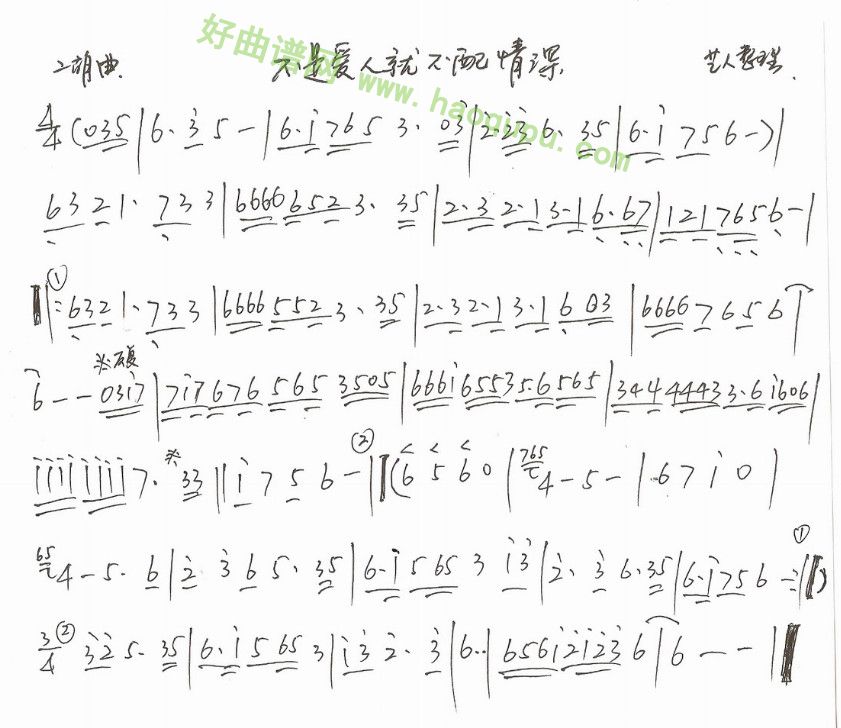 二胡曲 不是爱人就不配情深 艺人整理
好曲谱网 www.haoqupu.com
4/4 (035|6·3̇5-|6·1̇7653·03̇|2̇·2̇3̇6·35|6·1̇756-)|
6321·733|66666523·35|2·32·13·16·67|1217656-|
① ‖:6321·733|66665523·35|2·32·13·1603|66667656|
6--031̇7|71̇76765653505|6661̇655356565|34444433·61̇606|
1̇1̇1̇1̇1̇1̇1̇1̇7·33‖1̇756-② ‖(6560|765 4-5-|671̇0|
65 4-5·6|2̇3̇65·35|6·1̇56531̇3̇|2̇·3̇6·35|6·1̇756-① :‖)
3/4 ② 3̇2̇5·35|6·1̇5653|1̇3̇2̇·3̇|6··|6561̇2̇1̇2̇3̇6|6--‖